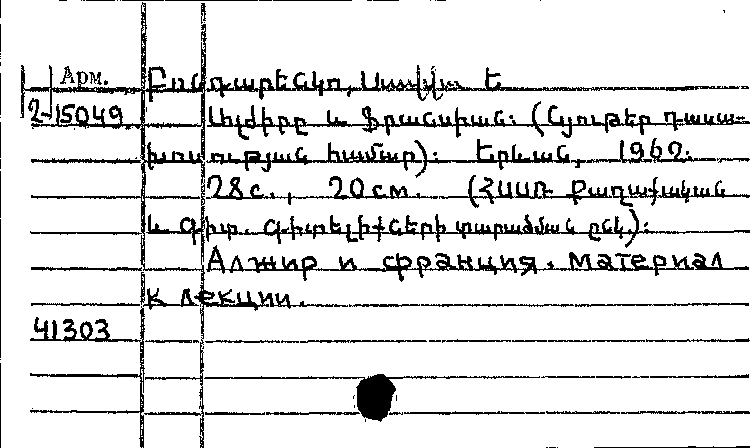 Арм.
Բոնդարենկո, Սավվա Ե
2-15049. Ալժիրը և Ֆրանսիան: (Նյութեր դասա-
խոսության համար): Երևան, 1962.
28 с., 20 см. (ՀՍՍՌ Քաղաքական
և գիտ. գիտելիքների տարածման ընկ.):
Алжир и франция. Материал
к лекции.
41303